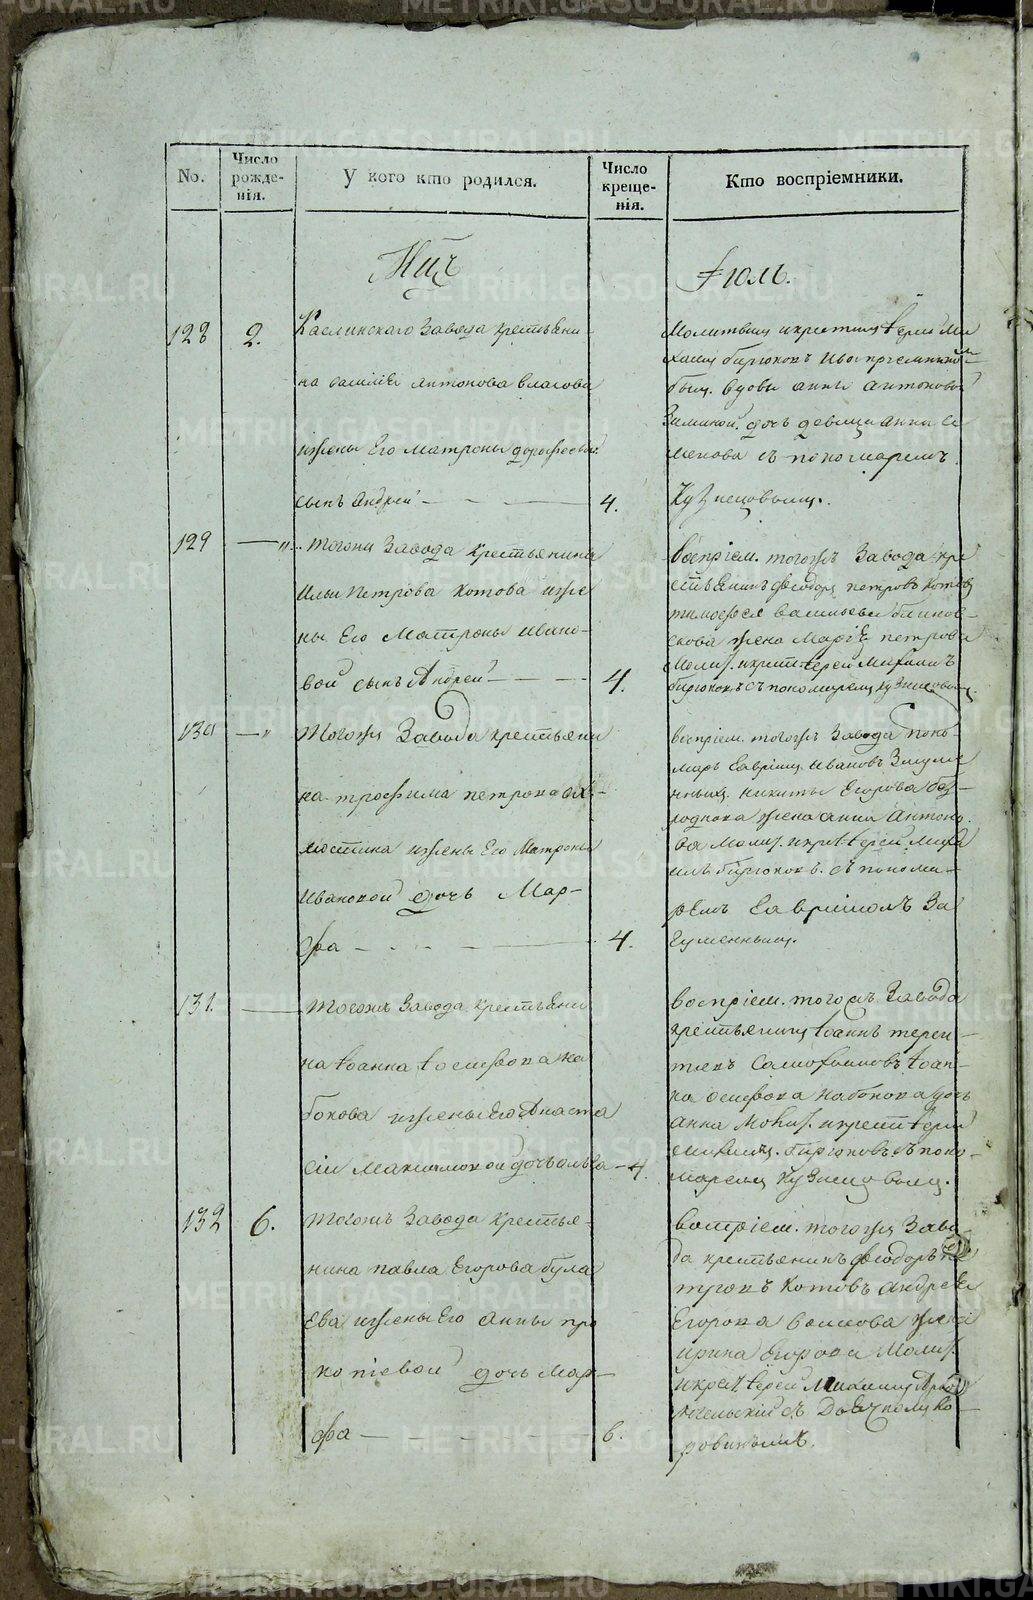 No.
Число рожде-нія.
У кого кто родился.
Число креще-нія.
Кто воспріемники.
Іюль.
128
2.
Каслинскаго Завода крестьяни-
на Василія Антонова Власова
ижены Его Матроны
сынъ Андрей
4.
Молитвил икрестил Іерей Ми
хаил Бирюковъ
был. вдовы Анны Антоновой
Зиминой. дочь девица Анна Се
менова съ пономаремъ
Кузнецовым.
129
— „
Тогожъ Завода крестьянина
Ильи Петрова Котова иже
ны Его Матроны Ивано-
вой сынъ Андрей
4.
воспріем. тогожъ Завода кре
стьянинъ Феодоръ Петровъ Котов
Тимофея Васильева
жена Марія Петрова
Молит. икрест. Іерей Михаилъ
Бирюковъ съ пономарем Кузнецовым.
130
— „
Тогожъ Завода крестьяни
на Трофима Петрова
ижены Его Матроны
Ивановой дочь Мар-
фа
4.
воспріем. тогожъ Завода поно-
марь Гавріил Ивановъ Загуме
нных. Никиты Егорова Без-
роднова жена Анна Антоно
ва Молит. икрест. Іерей Миха
илъ Бирюковъ. съ понома-
ремъ Гавріиломъ За
гуменным.
131.
Тогожъ Завода крестьяни
на Іоанна Іосифова На
бокова ижены Его Анаста
сіи Максимовой дочь Ольга
4.
воспріем. тогожъ Завода
крестьянин Іоаннъ Терен-
тьевъ Іоан-
на Осифова Набокова дочь
Анна Молит. икрест. Іерей
Михаил. Бирюковъ съ поно-
марем Кузнецовым.
132
6.
Тогожъ Завода крестья-
нина Павла Егорова Була
ева ижены Его Анны Про
копіевой дочь Мар-
фа
6.
воспріем. тогожъ Заво-
да крестьянинъ Феодоръ Пе
тровъ Котовъ Андрея
Егорова жена
Ирина Егорова Молит.
икрест. Іерей Михаил Арха
нгельскій съ Дьячком Ко
ровиным.
METRIKI.GASO-URAL.RU